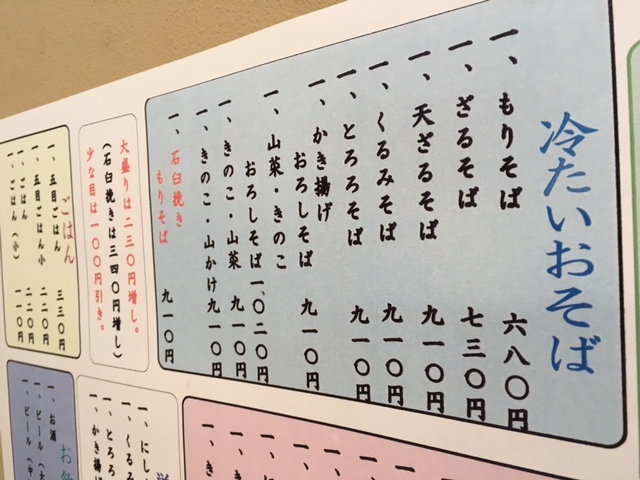 冷たいおそば
一、もりそば 六八〇円
一、ざるそば 七三〇円
一、天ざるそば 九一〇円
一、くるみそば 九一〇円
一、とろろそば 九一〇円
一、かき揚げ
おろしそば 九一〇円
一、山菜・きのこ
おろしそば 一、〇二〇円
一、きのこ・山菜 九一〇円
一、きのこ・山かけ 九一〇円
一、石臼挽き
もりそば 九一〇円
大盛りは二三〇円増し。
（石臼挽きは三四〇円増し）
少な目は一〇〇円引き。
ごはん
一、五目ごはん 三三〇円
一、五目ごはん小 二二〇円
一、ごはん 二二〇円
一、ごはん（小） 一一〇円
一、にし
一、くる
一、とろろ
一、かき揚げ
お飲
一、お酒
一、ビール（大
一、ビール（中